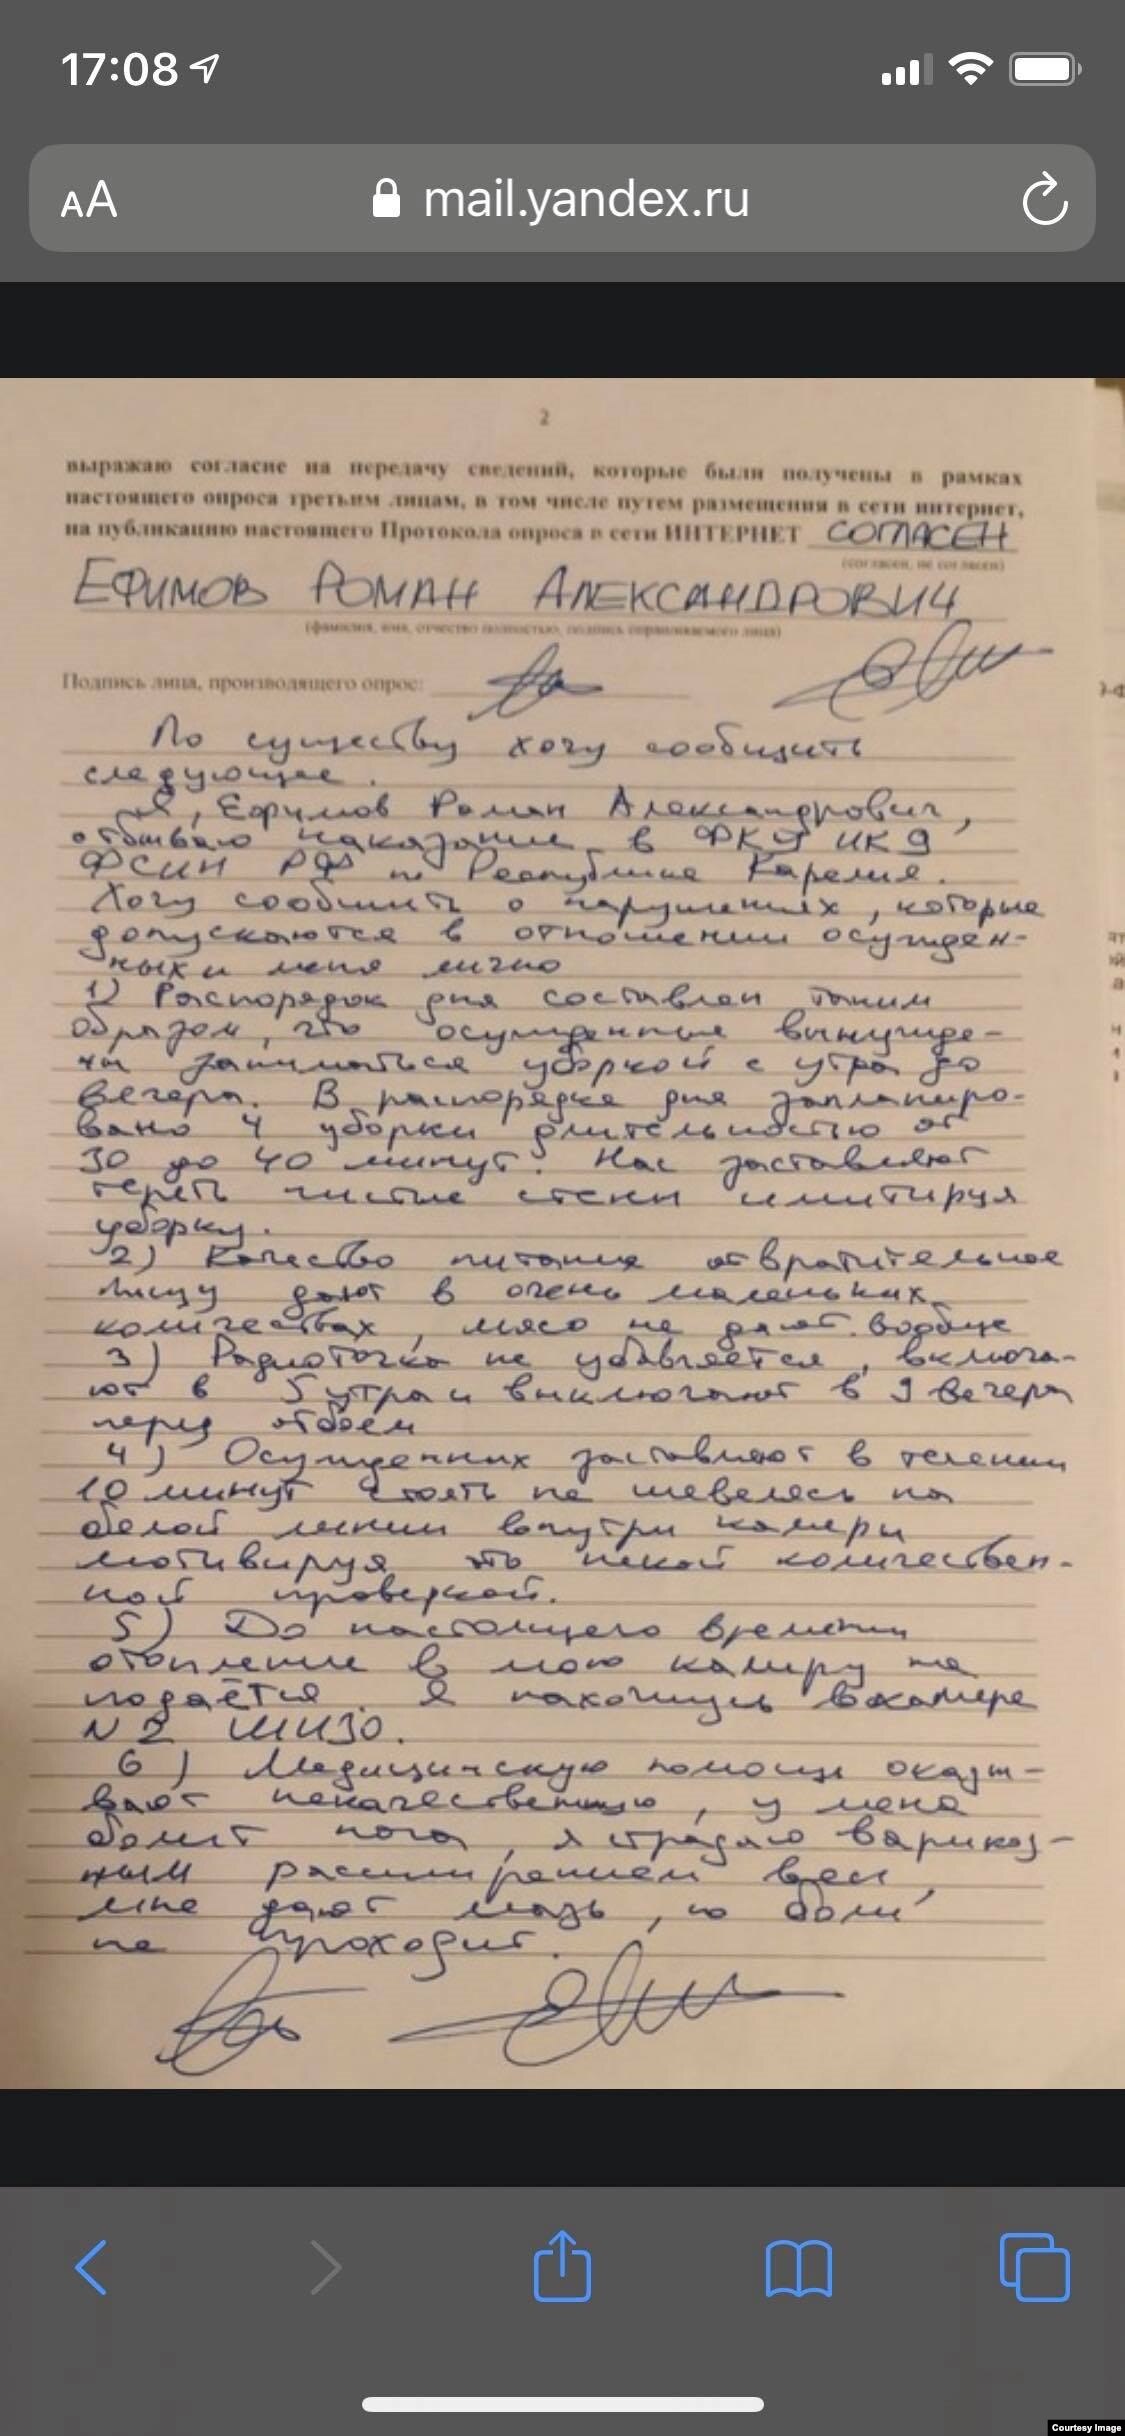 17:08
AA mail.yandex.ru
2
выражаю согласие на передачу сведений, которые были получены в рамках
настоящего опроса третьим лицам, в том числе путем размещения в сети интернет,
на публикацию настоящего Протокола опроса в сети ИНТЕРНЕТ СОГЛАСЕН
(согласен, не согласен)
ЕФИМОВ РОМАН АЛЕКСАНДРОВИЧ
(фамилия, имя, отчество полностью, подпись опрашиваемого лица)
Подпись лица, производящего опрос:
По существу хочу сообщить
следующее.
Я, Ефимов Роман Александрович,
отбываю наказание в ФКУ ИК 9
ФСИН РФ по Республике Карелия.
Хочу сообщить о нарушениях, которые
допускаются в отношении осужден-
ных и меня лично
1) Распорядок дня составлен таким
образом, что осужденные вынужде-
ны заниматься уборкой с утра до
вечера. В распорядке дня запланиро-
вано 4 уборки длительностью от
30 до 40 минут. Нас заставляют
тереть чистые стены имитируя
уборку.
2) Качество питания отвратительное
пищу дают в очень маленьких
количествах, мясо не дают вообще
3) Радиоточка не убавляется, включа-
ют в 5 утра и выключают в 9 вечера
перед отбоем
4) Осужденных заставляют в течении
10 минут стоять не шевелясь на
белой линии внутри камеры
мотивируя это некой количествен-
ной проверкой.
5) До настоящего времени
отопление в мою камеру не
подаётся. Я нахожусь в камере
N 2 ШИЗО.
6) Медицинскую помощь оказы-
вают некачественную, у меня
болит нога, я страдаю варикоз-
ным расширением вен,
мне дают мазь, но боль
не проходит.
Courtesy Image